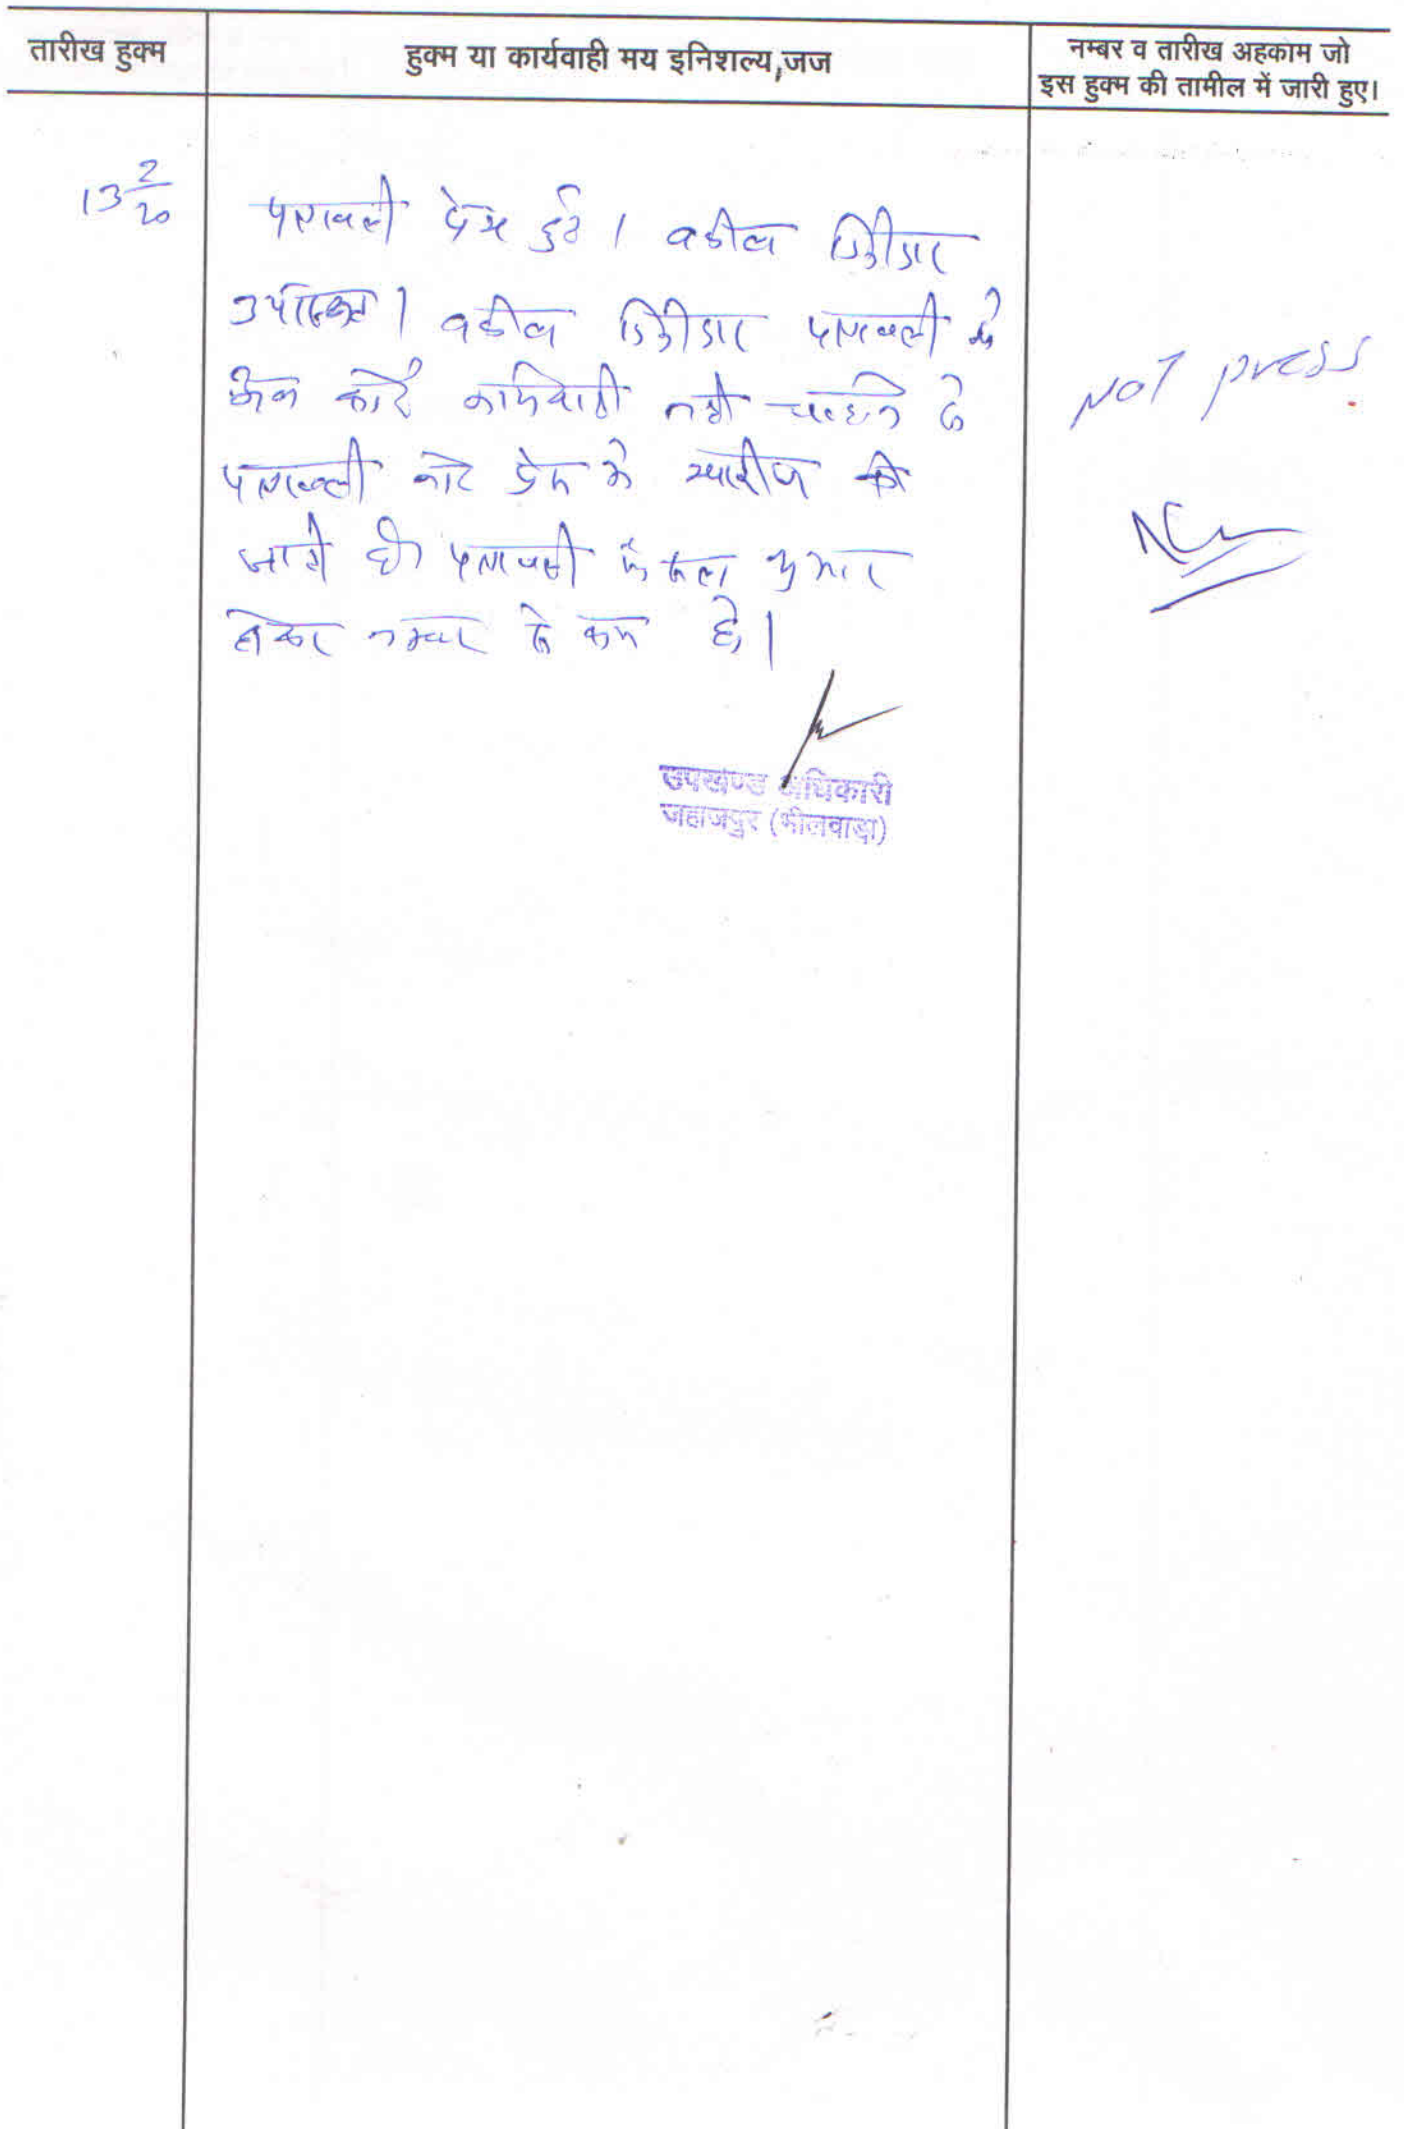 तारीख हुक्म
हुक्म या कार्यवाही मय इनिशल्य,जज
नम्बर व तारीख अहकाम जो
इस हुक्म की तामील में जारी हुए।
13 2/20
पत्रावली पेश हुई। वकील डिक्रीदार
उपस्थित। वकील डिक्रीदार पत्रावली में
कोई कार्यवाही नही चाहते है
पत्रावली नोट प्रेस में खारीज की
जाती है। पत्रावली फैसल शुमार
होकर नम्बर से कम हो।
Not press
उपखण्ड अधिकारी
जहाजपुर (भीलवाडा)